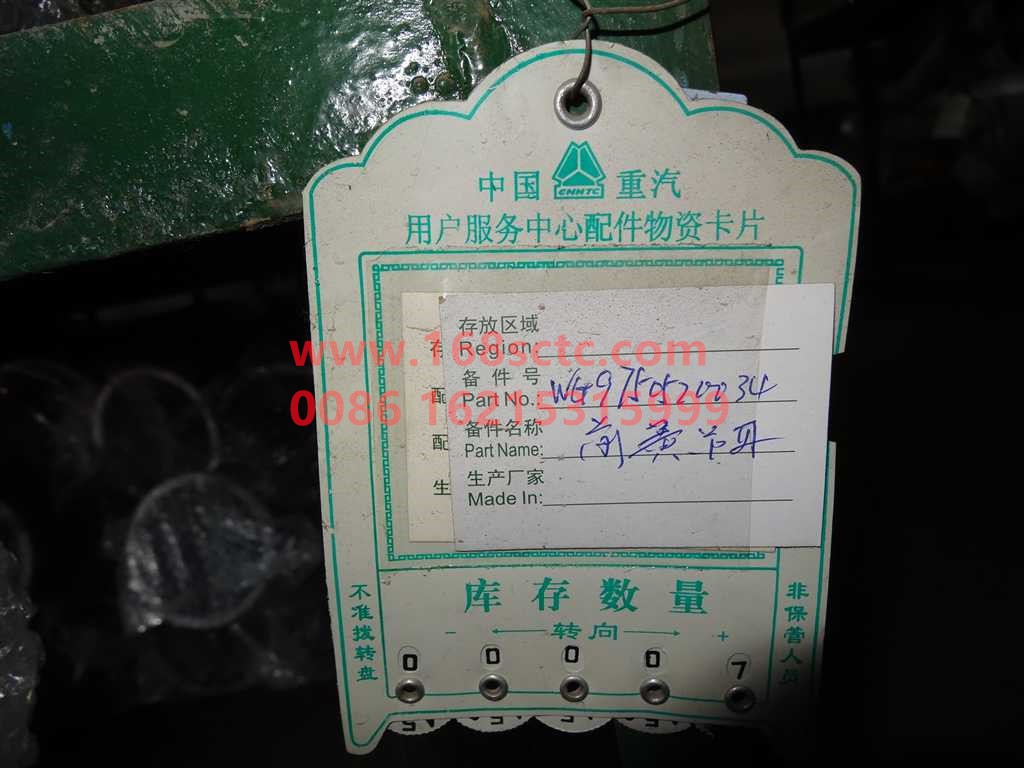 中国 CNHTC 重汽
用户服务中心配件物资卡片
存放区域
存 Region:
www.168sctc.com
备件号
配 Part No.: WG9750520034
0086 16215315999
备件名称
配 Part Name: 前簧吊耳
生产厂家
生 Made In:
库存数量
- 转向 +
不准拨转盘
非保管人员
0 0 0 0 7